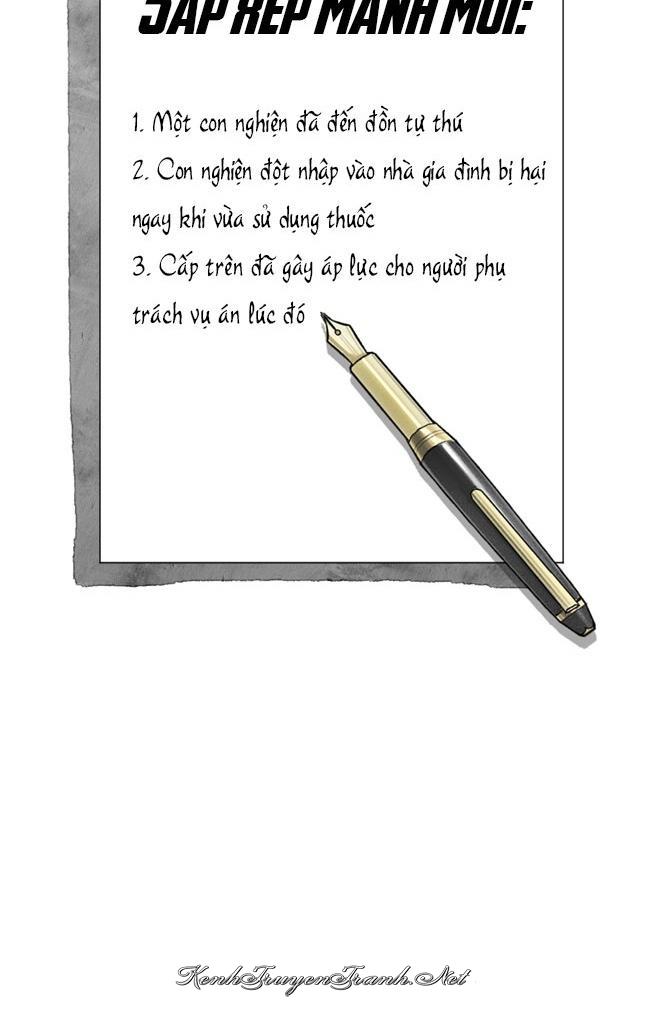 SẮP XẾP MANH MỐI:
1. Một con nghiện đã đến đồn tự thú
2. Con nghiện đột nhập vào nhà gia đình bị hại
ngay khi vừa sử dụng thuốc
3. Cấp trên đã gây áp lực cho người phụ
trách vụ án lúc đó
KenhTruyenTranh.Net